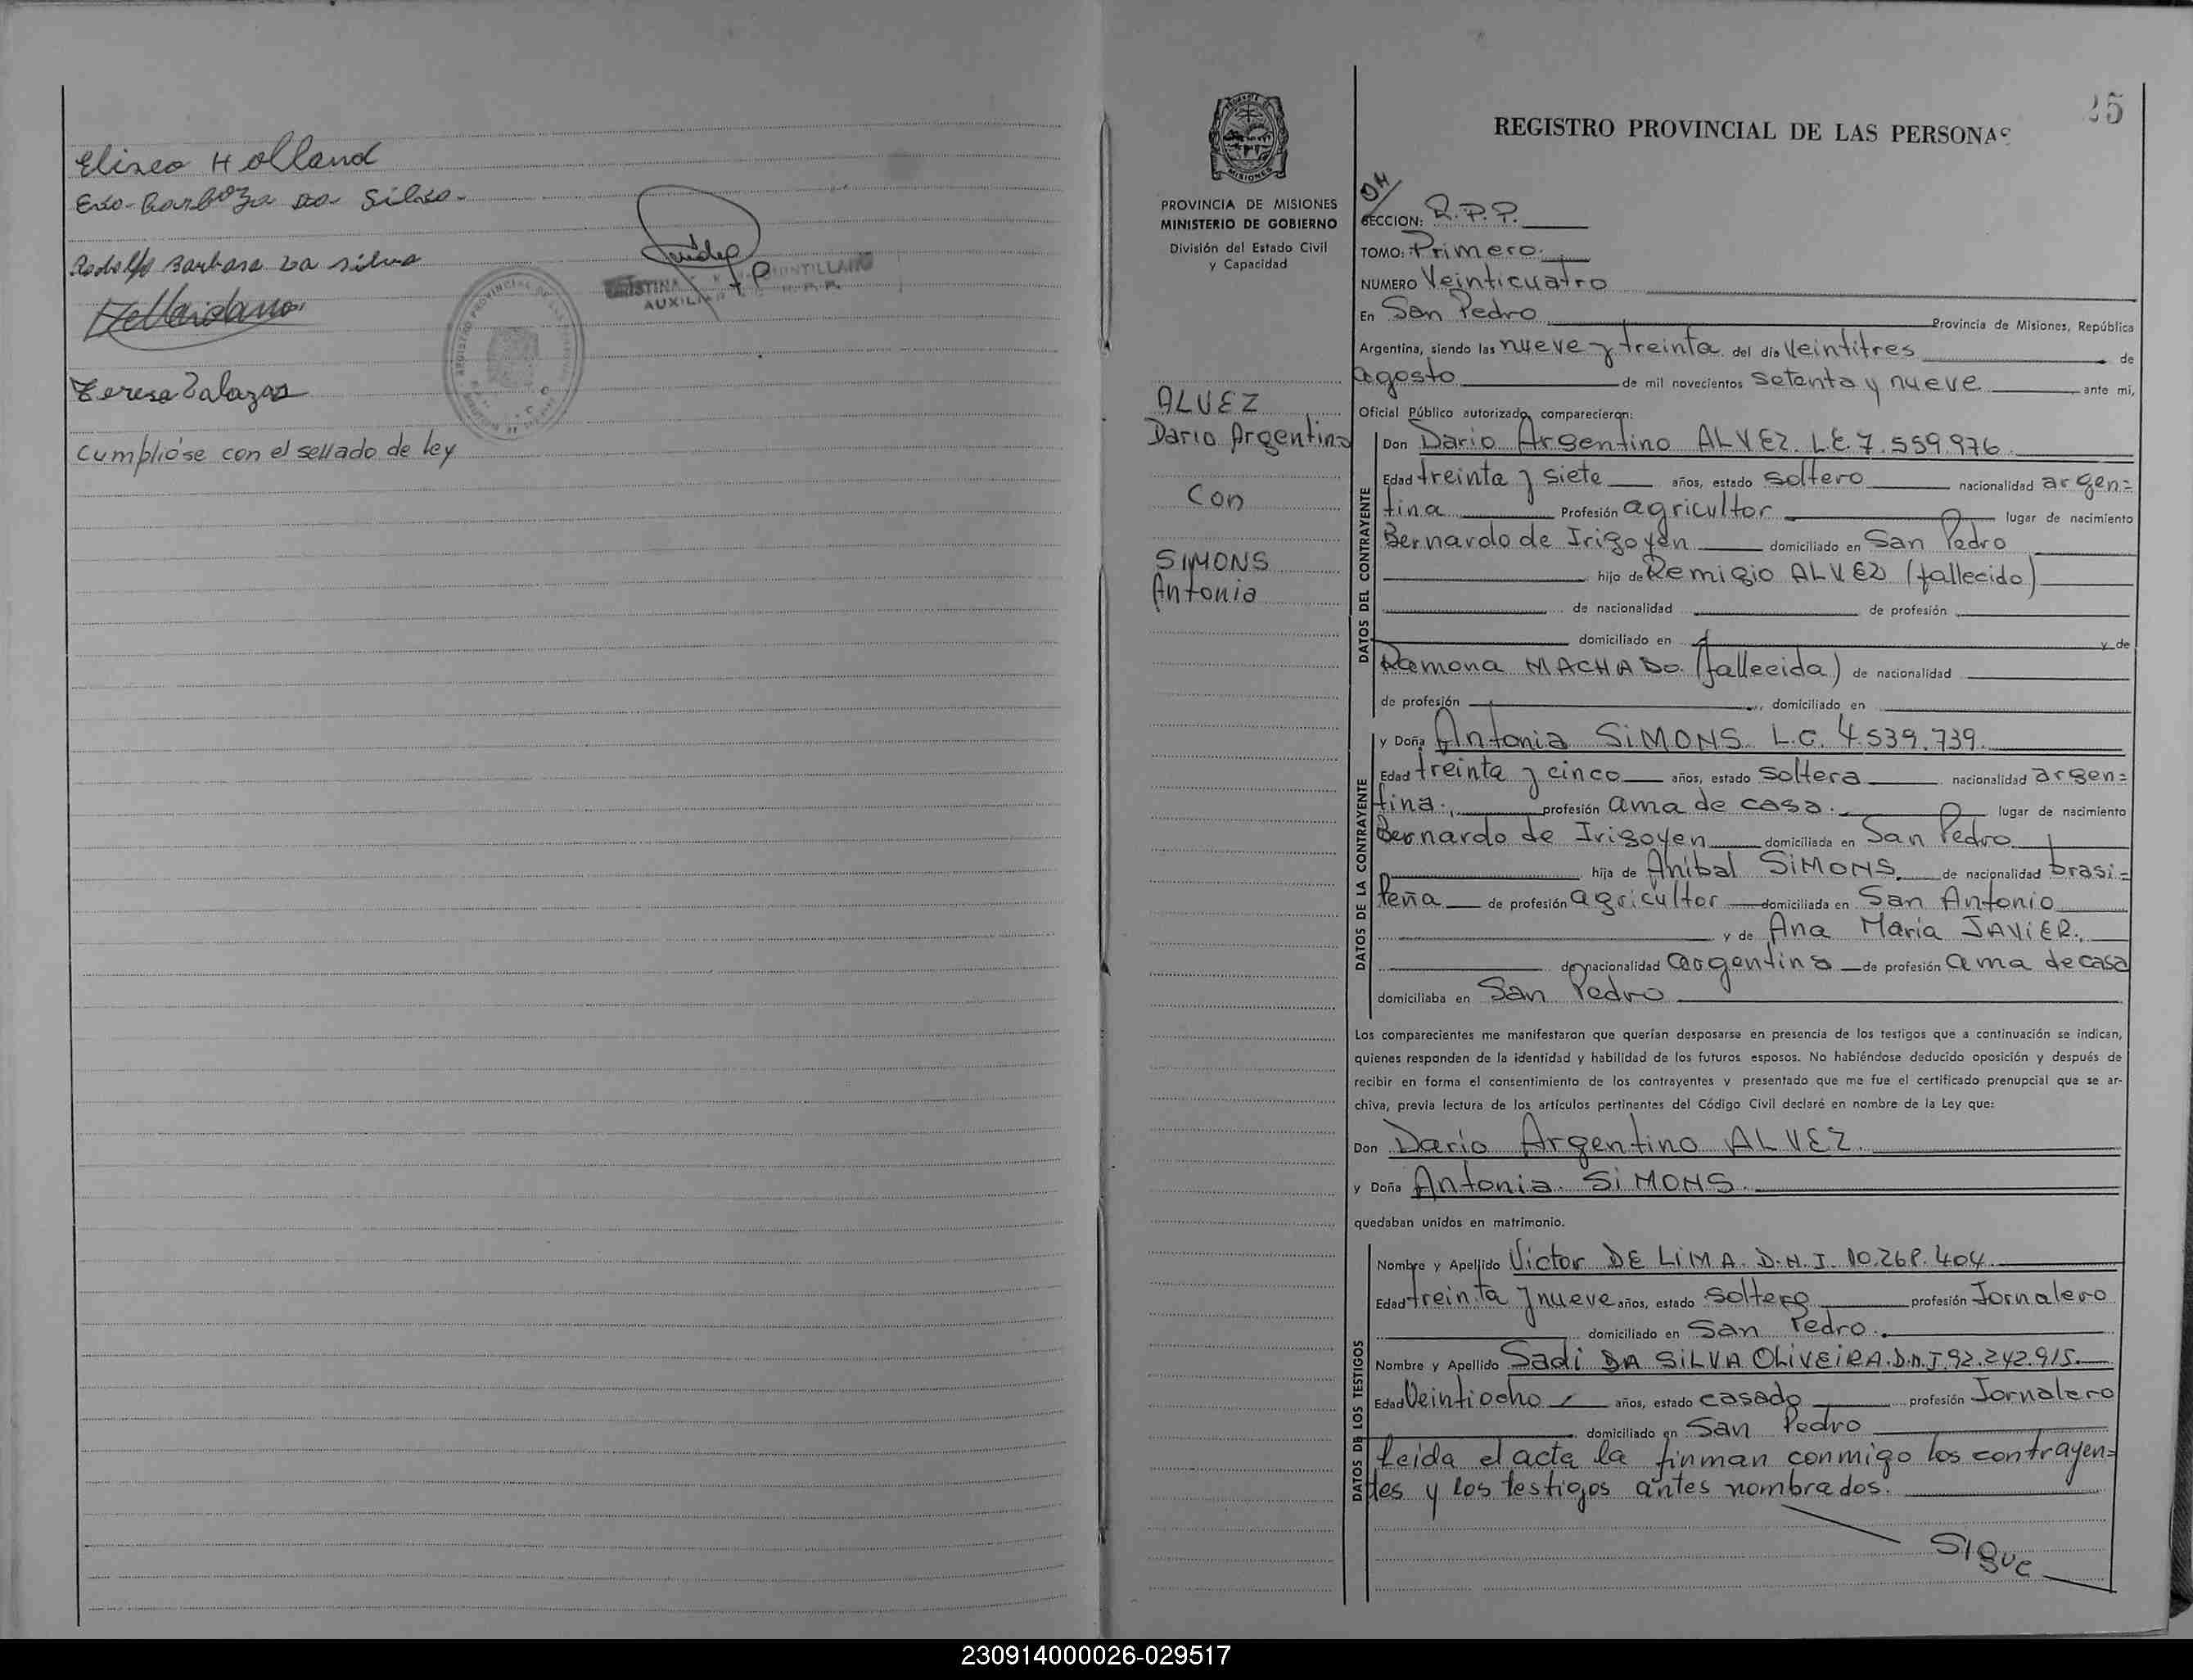 Eliseo Holland
Barboza Da Silva
Rodolfo Barbosa Da Silva
Teresa Salazar
Cumplióse con el sellado de ley
AUXILIAR
25
REGISTRO PROVINCIAL DE LAS PERSONAS
MISIONES
PROVINCIA DE MISIONES
MINISTERIO DE GOBIERNO
División del Estado Civil
y Capacidad
ALVEZ
Dario Argentino
Con
SIMONS
Antonia
SECCION: R.P.P.
TOMO: Primero.
NUMERO Veinticuatro
En San Pedro Provincia de Misiones, República
Argentina, siendo las nueve y treinta del día Veintitres de
agosto de mil novecientos setenta y nueve ante mí,
Oficial Público autorizado, comparecieron:
DATOS DEL CONTRAYENTE
Don Dario Argentino ALVEZ. L.E. 7.559.976.
Edad treinta y siete años, estado soltero nacionalidad argen=
tina Profesión agricultor lugar de nacimiento
Bernardo de Irigoyen domiciliado en San Pedro
hijo de Remigio ALVEZ (fallecido)
de nacionalidad de profesión
domiciliado en y de
Ramona MACHADO. (fallecida) de nacionalidad
de profesión domiciliado en
DATOS DE LA CONTRAYENTE
y Doña Antonia SiMONS L.C. 4.539.739.
Edad treinta y cinco años, estado soltera nacionalidad argen=
tina. profesión ama de casa. lugar de nacimiento
Bernardo de Irigoyen domiciliada en San Pedro.
hija de Anibal SiMONS. de nacionalidad brasi=
leña de profesión agricultor domiciliada en San Antonio
y de Ana Maria JAViER.
de nacionalidad argentina de profesión ama de casa
domiciliaba en San Pedro
Los comparecientes me manifestaron que querían desposarse en presencia de los testigos que a continuación se indican,
quienes responden de la identidad y habilidad de los futuros esposos. No habiéndose deducido oposición y después de
recibir en forma el consentimiento de los contrayentes y presentado que me fue el certificado prenupcial que se ar-
chiva, previa lectura de los artículos pertinentes del Código Civil declaré en nombre de la Ley que:
Don Dario Argentino ALVEZ.
y Doña Antonia. SiMONS.
quedaban unidos en matrimonio.
DATOS DE LOS TESTIGOS
Nombre y Apellido Victor DE LiMA. D.N.I. 10.268.404
Edad treinta y nueve años, estado soltero profesión Jornalero
domiciliado en San Pedro.
Nombre y Apellido Sadi DA SiLVA OLiVEiRA. D.N.I. 92.242.915.
Edad Veintiocho años, estado casado profesión Jornalero
domiciliado en San Pedro
Leida el acta la finman conmigo los contrayen=
tes y los testigos antes nombrados.
Sigue
230914000026-029517